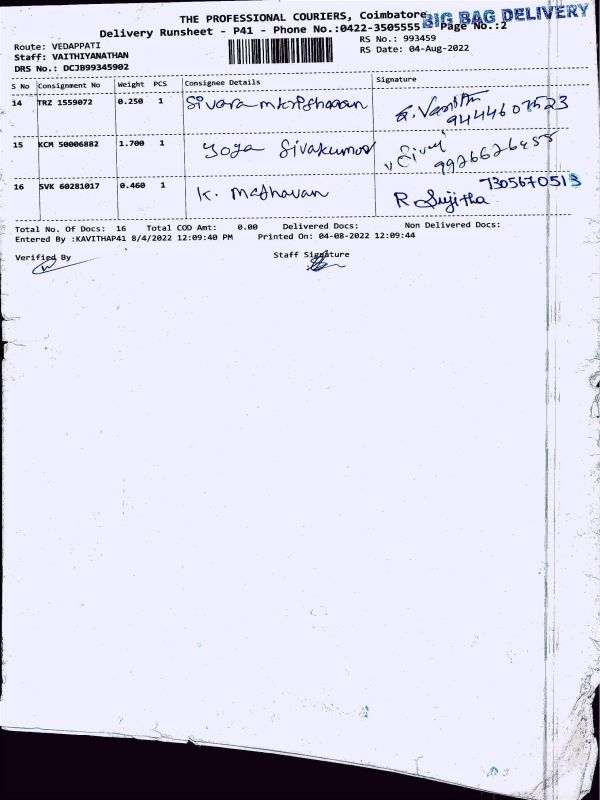 THE PROFESSIONAL COURIERS, Coimbatore
BIG BAG DELIVERY
Delivery Runsheet - P41 - Phone No.:0422-3505555 Page No.:2
Route: VEDAPPATI
RS No.: 993459
Staff: VAITHIYANATHAN
RS Date: 04-Aug-2022
DRS No.: DCJB99345902
S No Consignment No Weight PCS Consignee Details Signature
14 TRZ 1559072 0.250 1 Sivaramakrishanan
15 KCM 50006882 1.700 1 Yoga Sivakumar
16 SVK 60281017 0.460 1 K. Madhavan 7305670513
R Sujitha
Total No. Of Docs: 16 Total COD Amt: 0.00 Delivered Docs: Non Delivered Docs:
Entered By :KAVITHAP41 8/4/2022 12:09:40 PM Printed On: 04-08-2022 12:09:44
Verified By Staff Signature